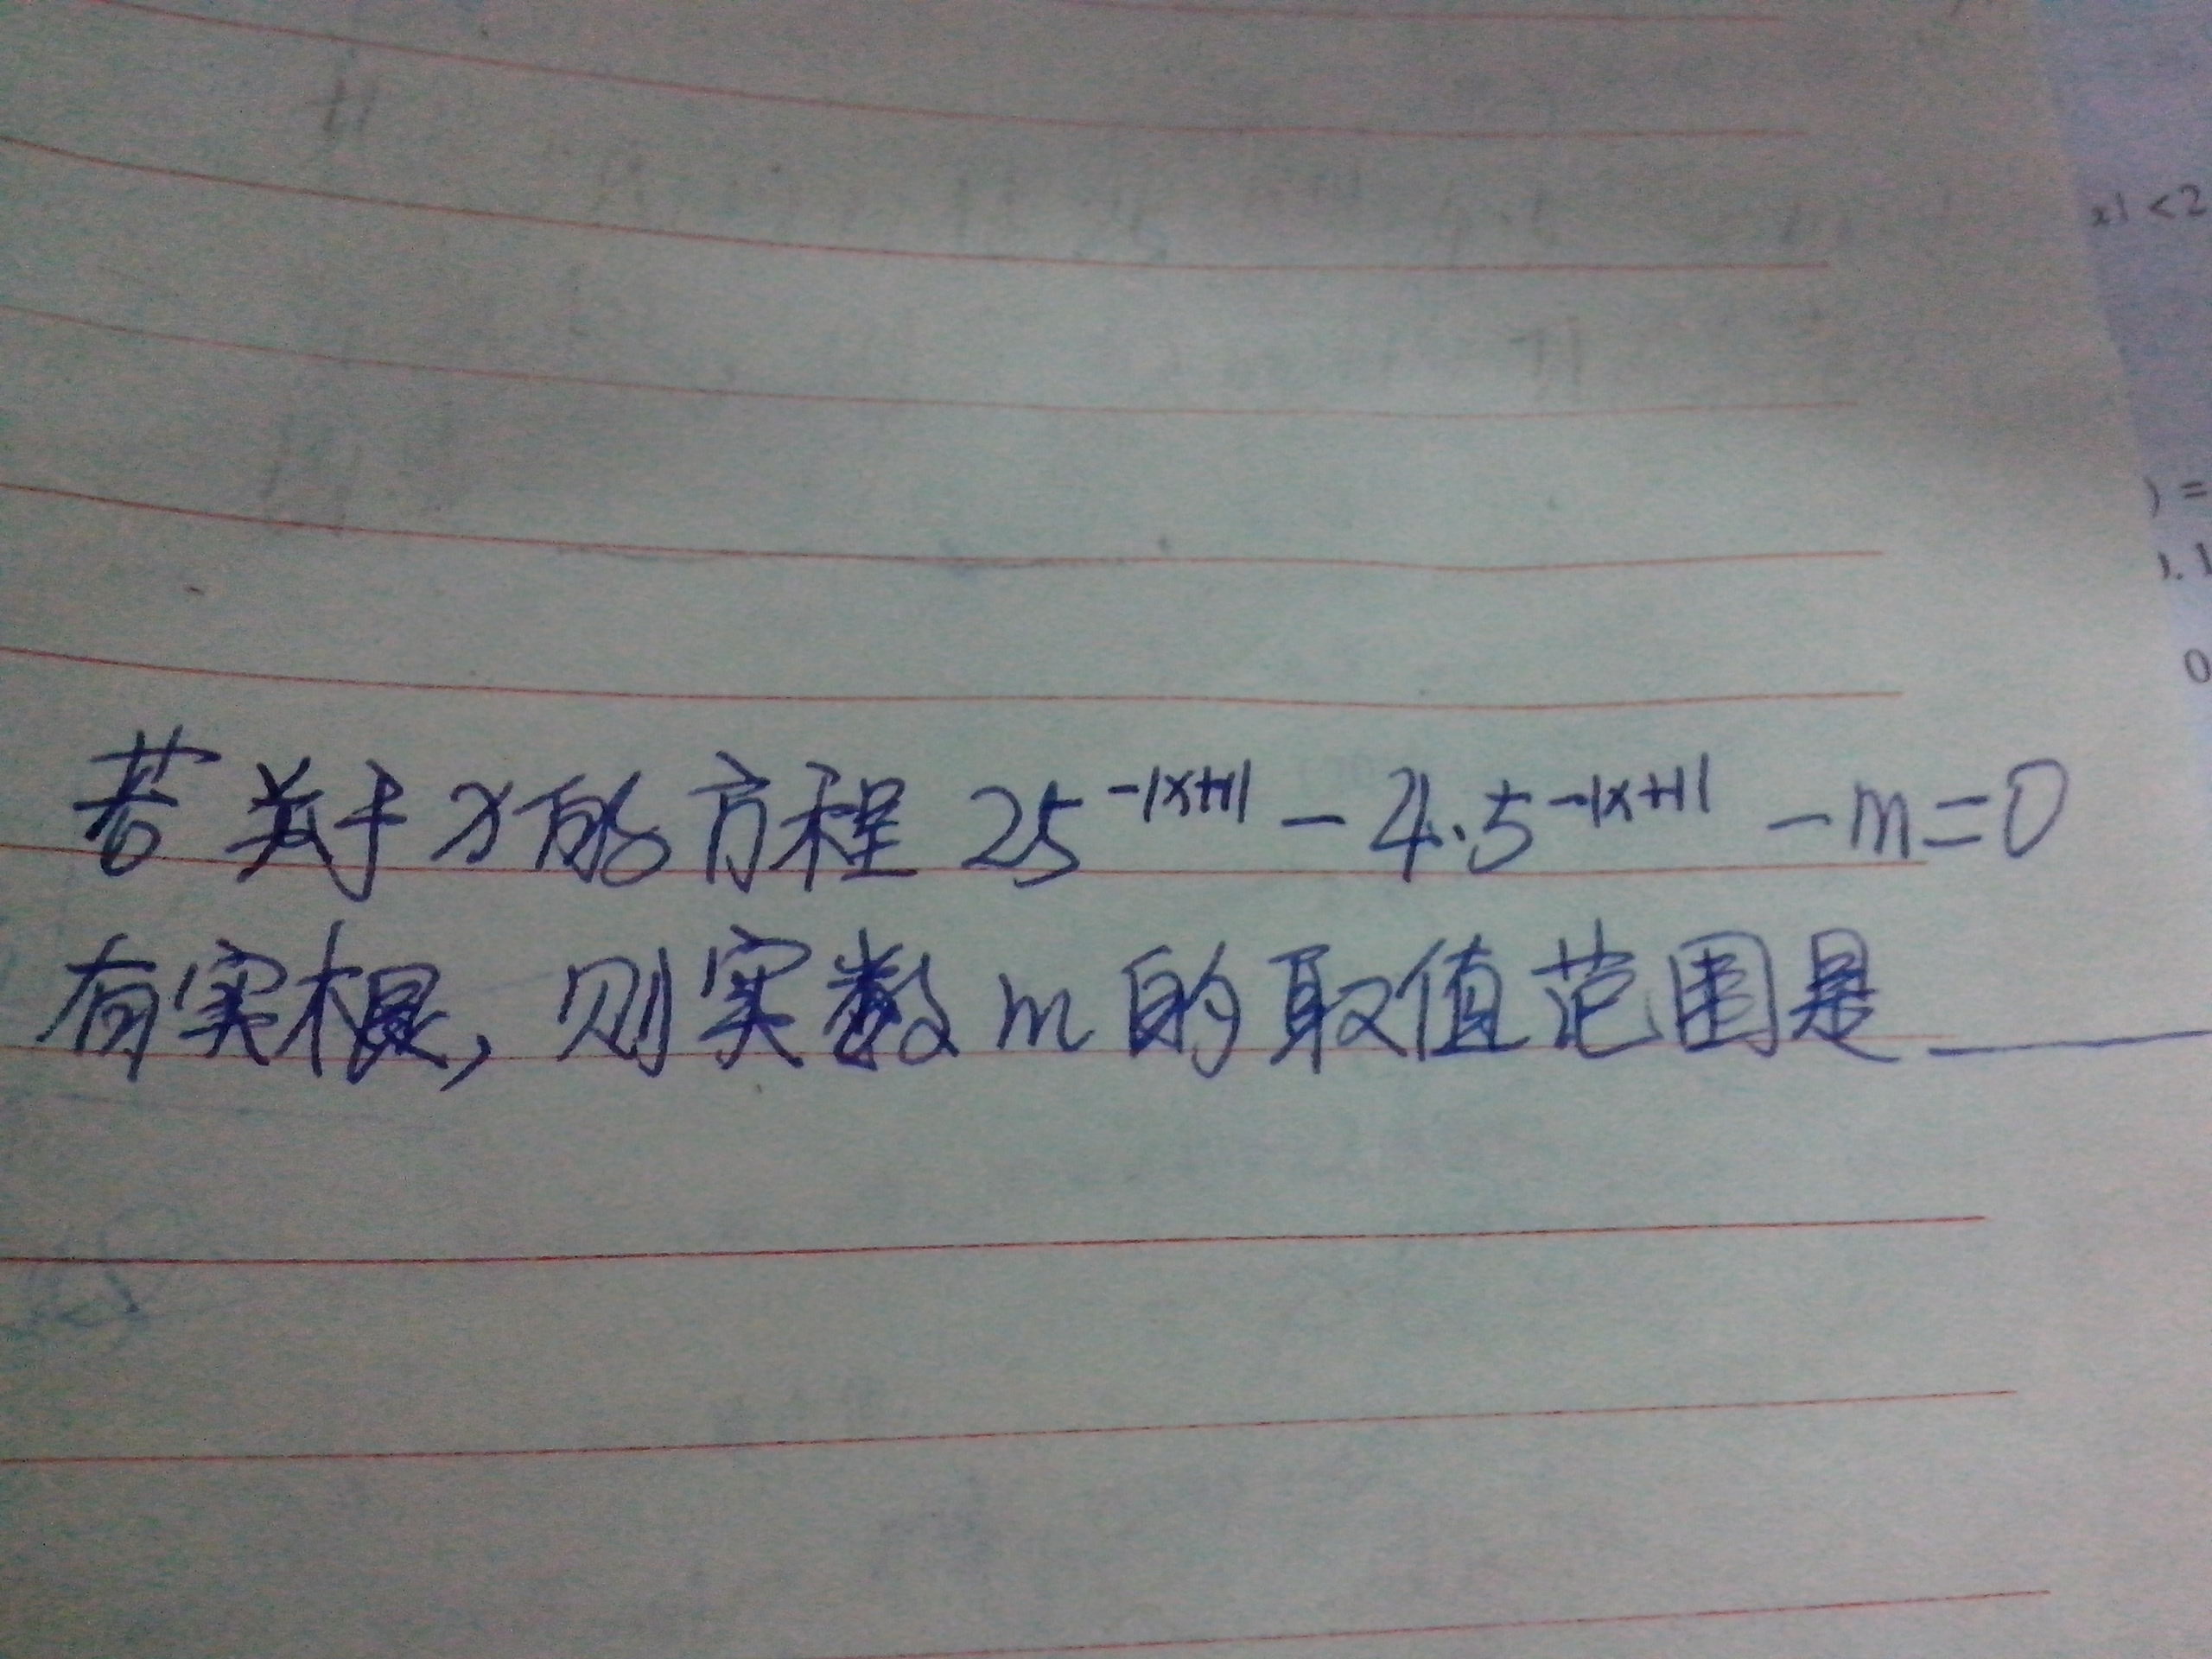 x|<2
)=
).1
0
若关于x的方程 25^{-|x+1|} - 4·5^{-|x+1|} - m=0
有实根，则实数m的取值范围是____